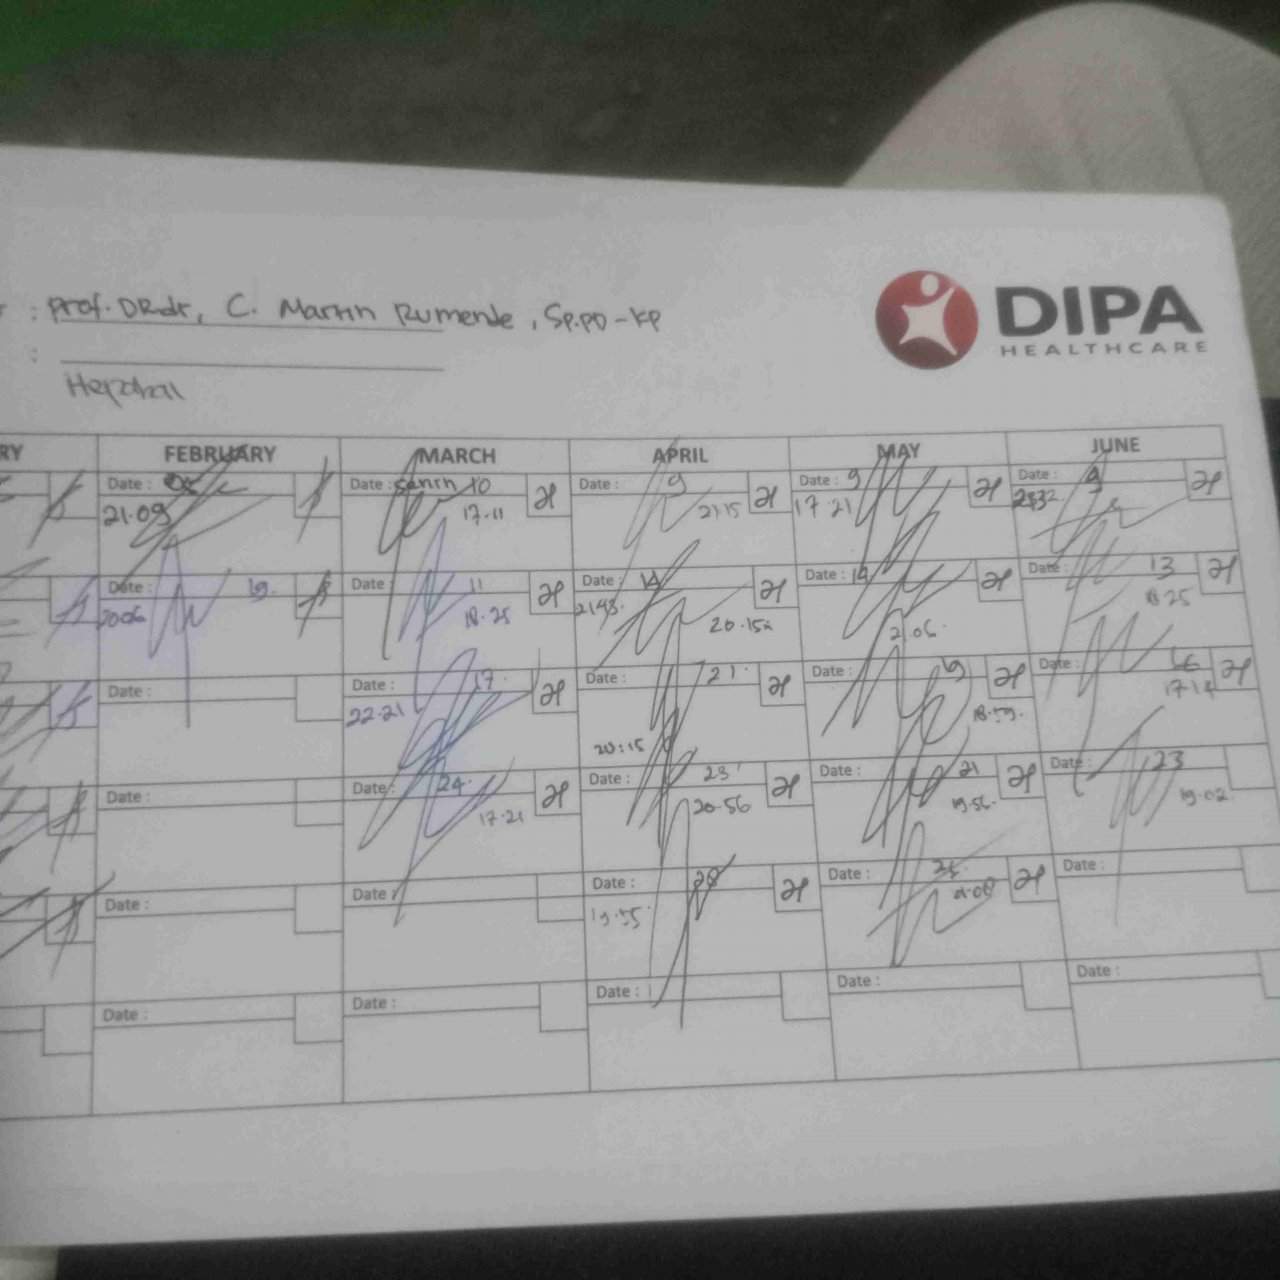 : Prof. DR.dr, C. Martin Rumende, Sp.PD-KP
:
DIPA
HEALTHCARE
RY FEBRUARY MARCH APRIL MAY JUNE
Date : Date : 10 Date : 9 Date : 9 Date : 9
21.09 17.11 21.15 17.21
Date : 19. Date : 11 Date : 14 Date : 19 Date : 13
2006 18.25 21.06. 18.25
Date : Date : 17. Date : 21. Date : 19 Date : 16
22.21 20:15 18.59. 17.14
Date : Date : 24. Date : 23 Date : 21 Date : 23
17.21 20.56 19.56. 19.02
Date : Date : Date : 28 Date : 25 Date :
19.55
Date : Date : Date : Date : Date :